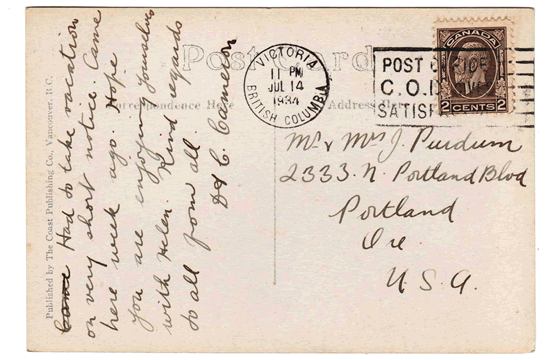 Post Card
Correspondence Here
Address Here
Published by The Coast Publishing Co., Vancouver, B.C.
Had to take vacation
on very short notice. Came
here week ago. Hope
you are enjoying yourselves
with Helen. Kind regards
to all from all
Cameron
VICTORIA
11 PM
JUL 14
1934
BRITISH COLUMBIA
POST
C.O.D.
SATISF
CANADA
2 CENTS 2
Mr & Mrs J. Purdum
2333 N. Portland Blvd
Portland
Ore
U.S.A.